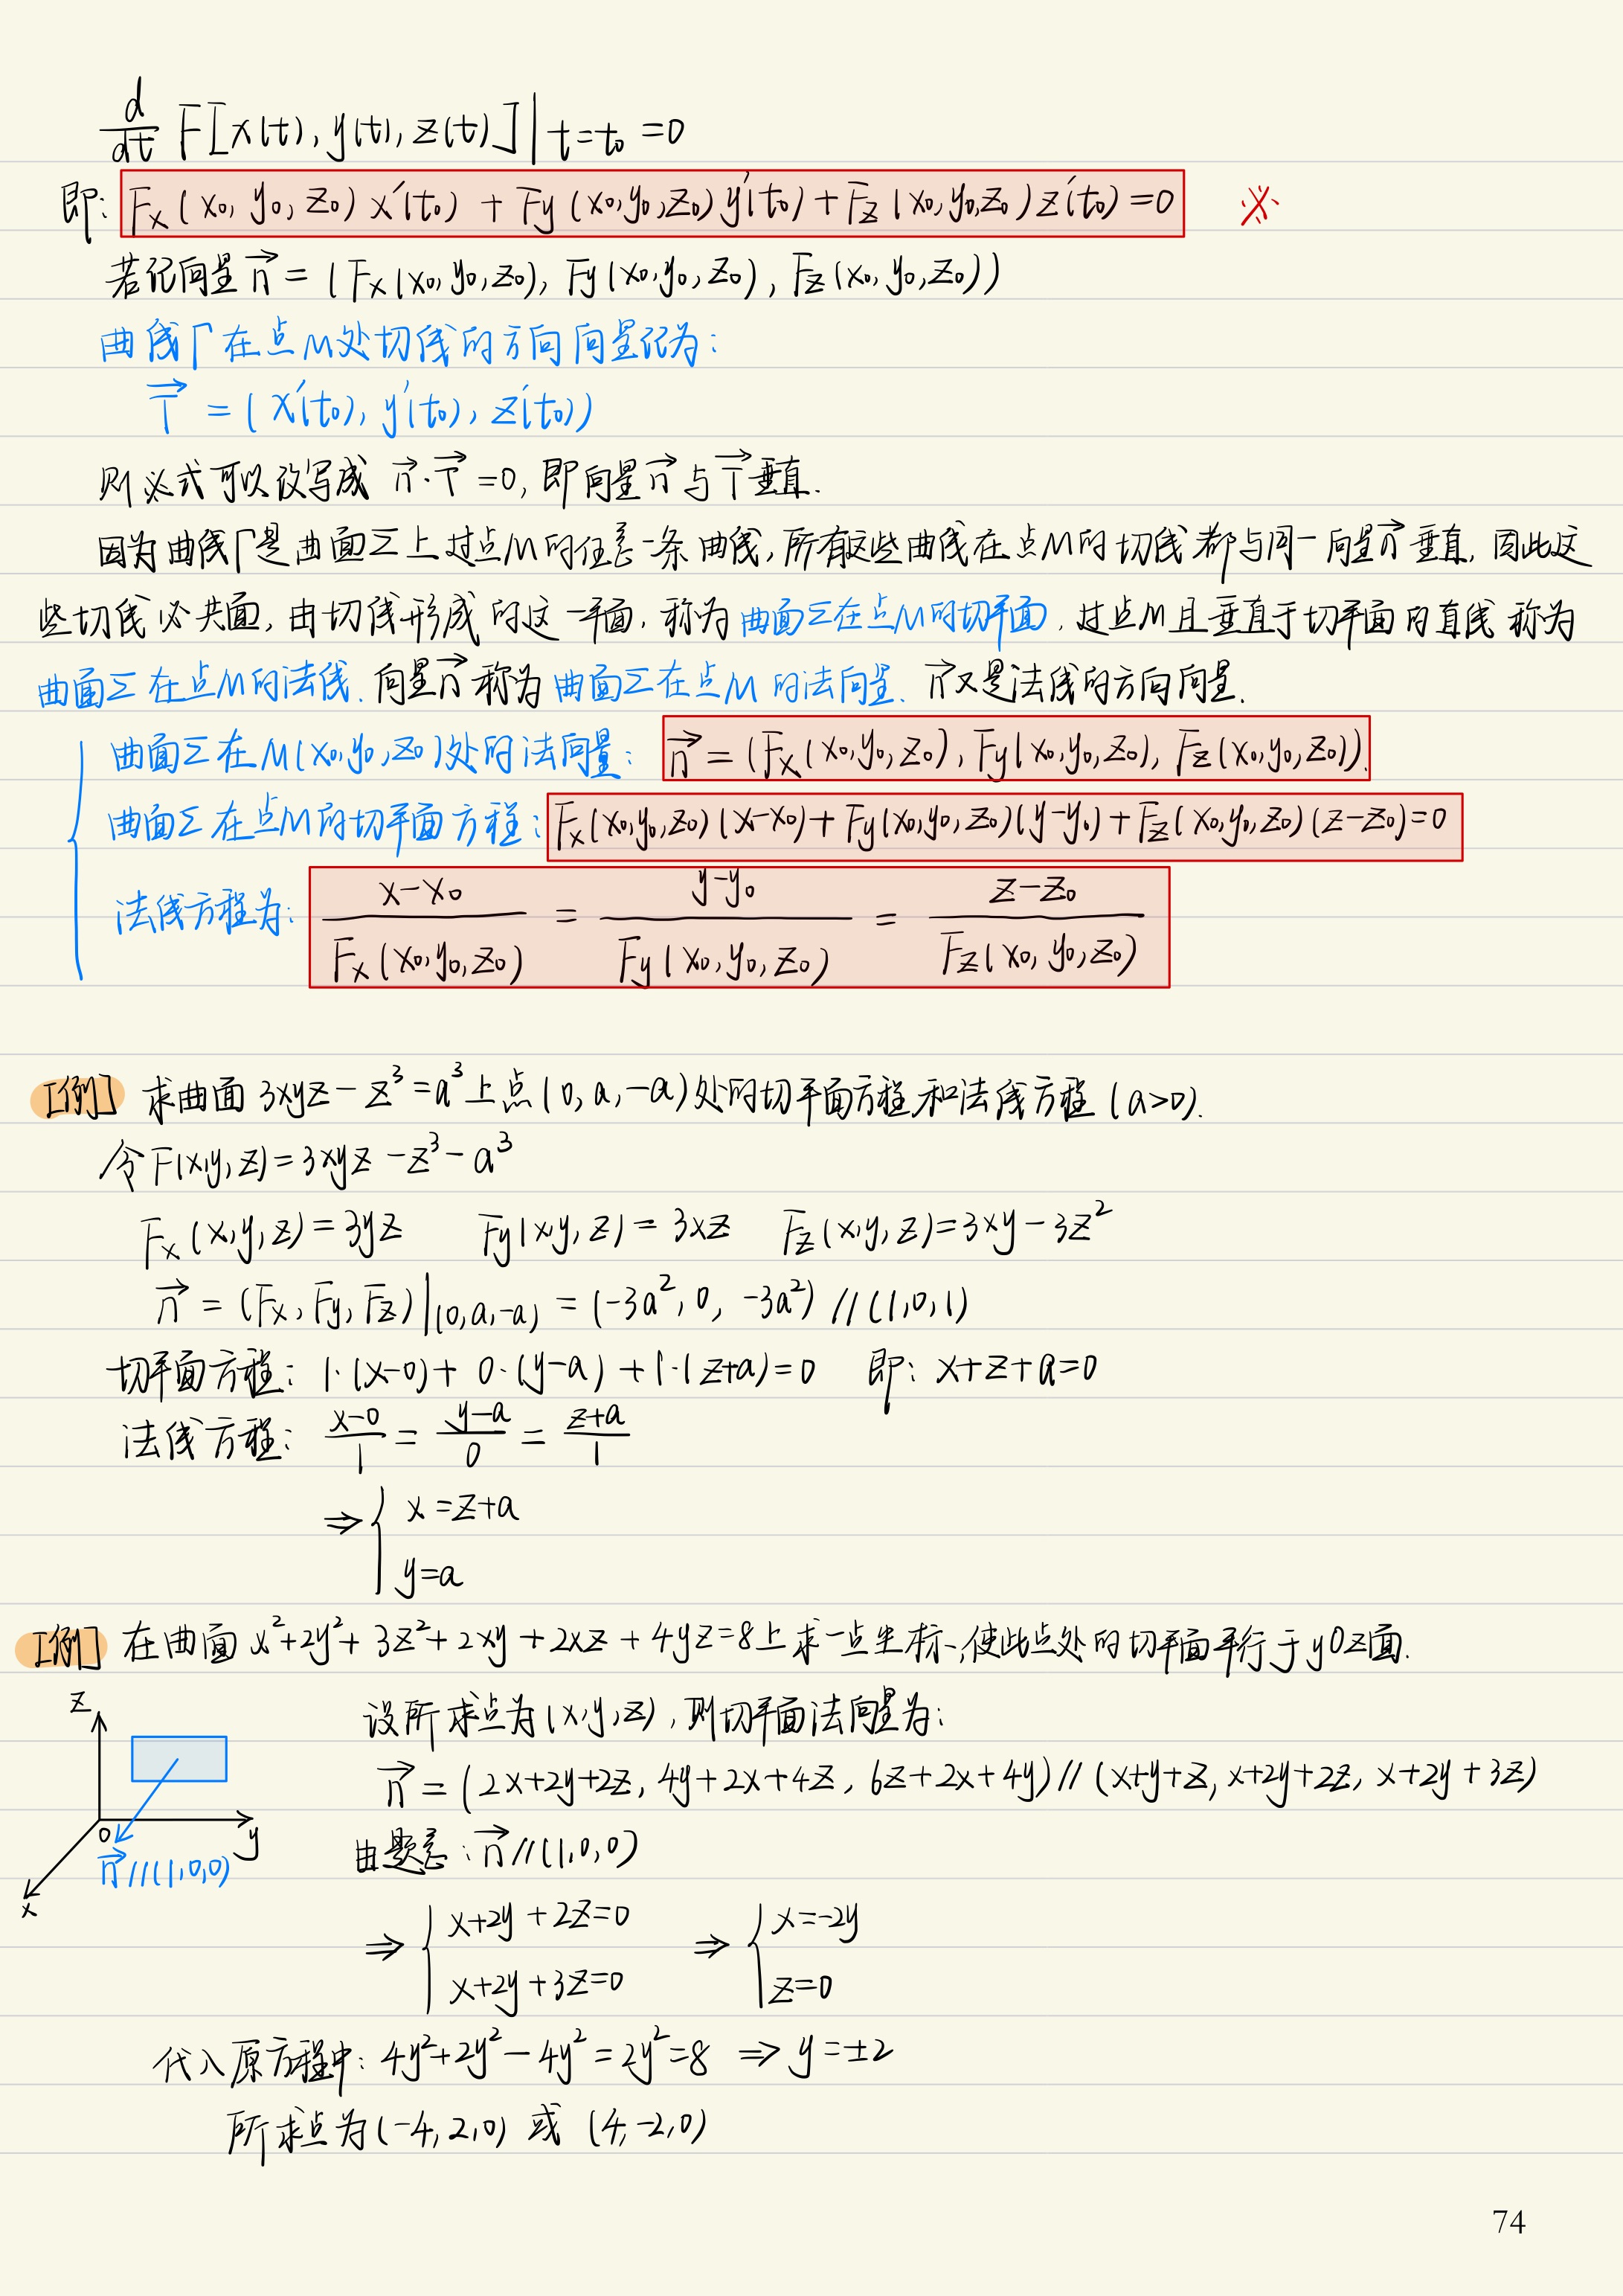 d/dt F[x(t), y(t), z(t)]|t=t₀ =0
即: Fx(x₀, y₀, z₀) x′(t₀) + Fy(x₀,y₀,z₀) y′(t₀) + Fz(x₀,y₀,z₀) z′(t₀) =0 ※
若记向量n⃗ = (Fx(x₀,y₀,z₀), Fy(x₀,y₀,z₀), Fz(x₀,y₀,z₀))
曲线Γ在点M处切线的方向向量记为:
T⃗ = (x′(t₀), y′(t₀), z′(t₀))
则※式可以改写成 n⃗·T⃗ =0, 即向量n⃗与T⃗垂直.
因为曲线Γ是曲面Σ上过点M的任意一条曲线,所有这些曲线在点M的切线都与同一向量n⃗垂直, 因此这
些切线必共面,由切线形成的这一平面, 称为曲面Σ在点M的切平面, 过点M且垂直于切平面的直线称为
曲面Σ在点M的法线. 向量n⃗称为曲面Σ在点M的法向量. n⃗又是法线的方向向量.
曲面Σ在M(x₀,y₀,z₀)处的法向量: n⃗ = (Fx(x₀,y₀,z₀), Fy(x₀,y₀,z₀), Fz(x₀,y₀,z₀)).
曲面Σ在点M的切平面方程: Fx(x₀,y₀,z₀)(x-x₀)+Fy(x₀,y₀,z₀)(y-y₀)+Fz(x₀,y₀,z₀)(z-z₀)=0
法线方程为: (x-x₀)/Fx(x₀,y₀,z₀) = (y-y₀)/Fy(x₀,y₀,z₀) = (z-z₀)/Fz(x₀,y₀,z₀)
[例] 求曲面3xyz-z³=a³上点(0,a,-a)处的切平面方程和法线方程(a>0).
令F(x,y,z)=3xyz-z³-a³
Fx(x,y,z)=3yz Fy(x,y,z)=3xz Fz(x,y,z)=3xy-3z²
n⃗ = (Fx, Fy, Fz)|(0,a,-a) = (-3a², 0, -3a²) // (1,0,1)
切平面方程: 1·(x-0)+ 0·(y-a) +1·(z+a)=0 即: x+z+a=0
法线方程: (x-0)/1 = (y-a)/0 = (z+a)/1
⇒ { x=z+a
y=a
[例] 在曲面x²+2y²+3z²+2xy+2xz+4yz=8上求一点坐标,使此点处的切平面平行于yOz面.
设所求点为(x,y,z), 则切平面法向量为:
n⃗ = (2x+2y+2z, 4y+2x+4z, 6z+2x+4y) // (x+y+z, x+2y+2z, x+2y+3z)
由题意: n⃗//(1,0,0)
z
O
y
x
n⃗//(1,0,0)
⇒ { x+2y+2z=0 ⇒ { x=-2y
x+2y+3z=0 z=0
代入原方程中: 4y²+2y²-4y²=2y²=8 ⇒ y=±2
所求点为(-4,2,0) 或 (4,-2,0)
74